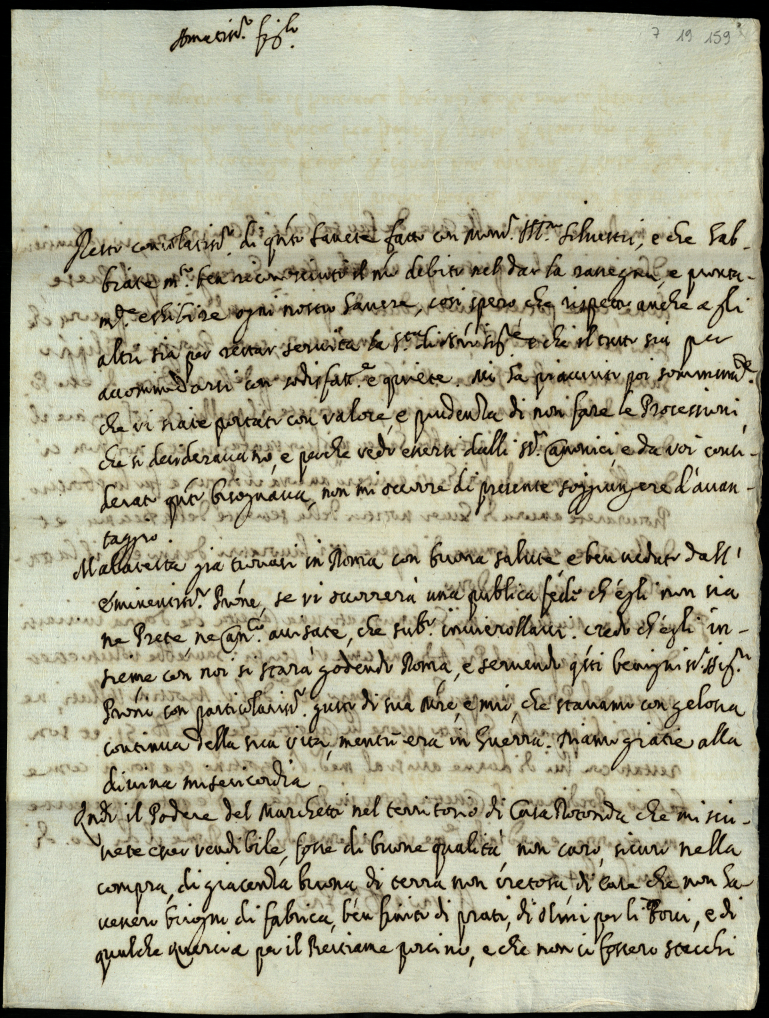 Amatiss.o fig.lo
7 19 159
Resto consolatiss.o di q.to havete fatto con Mons.r Ill.mo Silvestri, e che hab-
biate m.to ben riconosciuto il mio debito nel dar la rassegna, e pronta-
m.te essibire ogni nostro havere, così spero che rispetto anche a gli
altri sia per restar servita la S.ta di e che il tutto sia per
accommodarsi con sodisfatt.e e quiete. Mi ha piacciuto poi sommam.te
che vi siate portati con valore, e prudenza di non fare le Processioni
che si desideravano, e perche vedo essersi dalli SS.ri Canonici, e da voi consi-
derato q.to bisognava, non mi occorre di presente soggiungere d'avan-
taggio.
Malatesta già trovasi in Roma con buona salute e ben veduto dall'
Eminentiss.o Prone, se vi occorrerà una publica fede ch'egli non sia
ne Prete ne Can.co avisate, che sub.o inviarollavi. credo ch'egli in-
sieme con noi si starà godendo Roma, e servendo q.sti benigniss.i
Proni con particolariss.o gusto di sua M.re, e mio, che stavamo con gelosia
continua della sua vita, mentre era in Guerra. Siano gratie alla
divina misericordia
Qndo il Podere del Marchetti nel territorio di Casa Rotonda che mi scri-
vete esser vendibile, fosse di buone qualità, non caro, sicuro nella
compra, di giacenza buona, di terra non cretosa, di Casa che non ha-
vesse bisogno di fabrica, ben finito di prati, di Olmi per li Bovi, e di
qualche Quarcia per il Bestiame porcino, e che non ci fossero stecchi